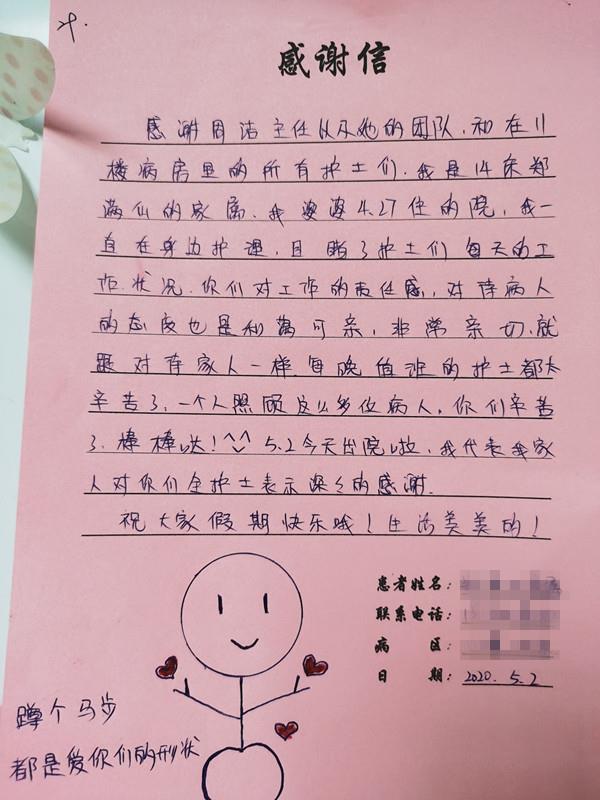 感谢信
感谢周洁主任以及她的团队，和在11
楼病房里的所有护士们．我是14床郑
满仙的家属．我婆婆4.27住的院，我一
直在身边护理，目睹了护士们每天的工
作状况．你们对工作的责任感，对待病人
的态度也是和蔼可亲，非常亲切，就
跟对待家人一样．每晚值班的护士都太
辛苦了，一个人照顾这么多位病人，你们辛苦
了，棒棒哒！^^ 5.2今天出院啦，我代表我家
人对你们全护士表示深深的感谢．
祝大家假期快乐哦！生活美美的！
患者姓名：
联系电话：
病 区：
日 期：2020．5．2
蹲个马步
都是爱你们的形状